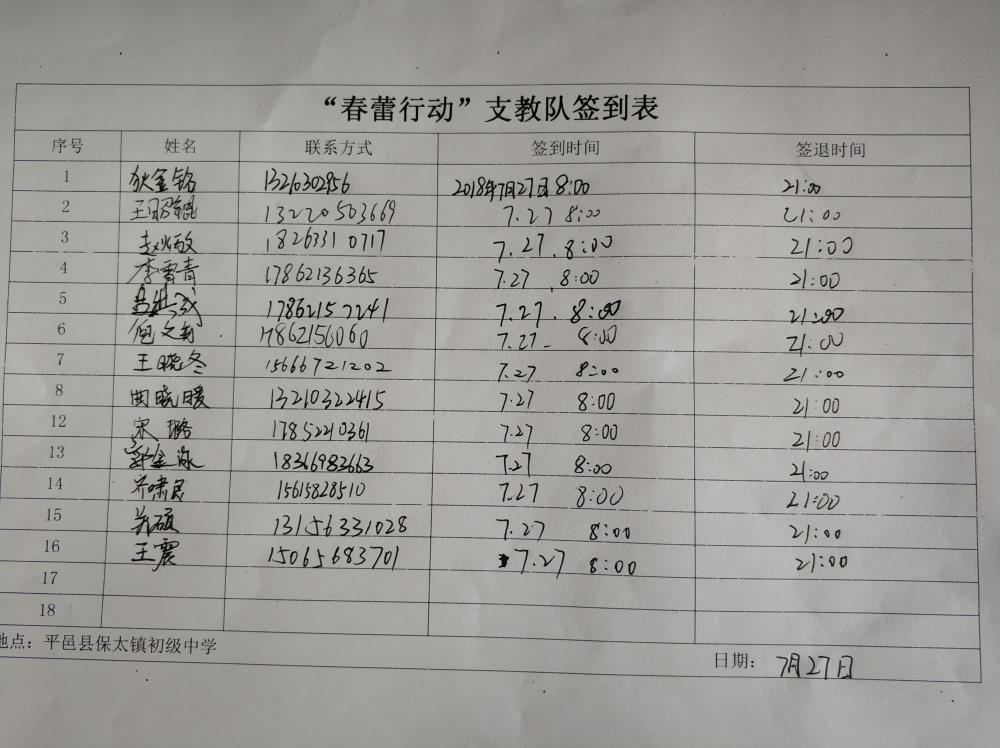 “春蕾行动”支教队签到表
序号 姓名 联系方式 签到时间 签退时间
1 狄金铭 1326302956 2018年7月27日 8:00 21:00
2 王昭锟 13220503669 7.27 8:00 21:00
3 赵炳敏 18263310717 7.27. 8:00 21:00
4 李雪青 17862136365 7.27 8:00 21:00
5 17862152241 7.27. 8:00 21:00
6 17862156060 7.27 8:00 21:00
7 王晓冬 15666721202 7.27 8:00 21:00
8 曲晓暖 13210322415 7.27 8:00 21:00
12 宋璐 1785220361 7.27 8:00 21:00
13 18366983663 7.27 8:00 21:00
14 齐啸民 15615828510 7.27 8:00 21:00
15 硕 13156331028 7.27 8:00 21:00
16 王震 15065683701 7.27 8:00 21:00
17
18
地点：平邑县保太镇初级中学
日期： 7月27日